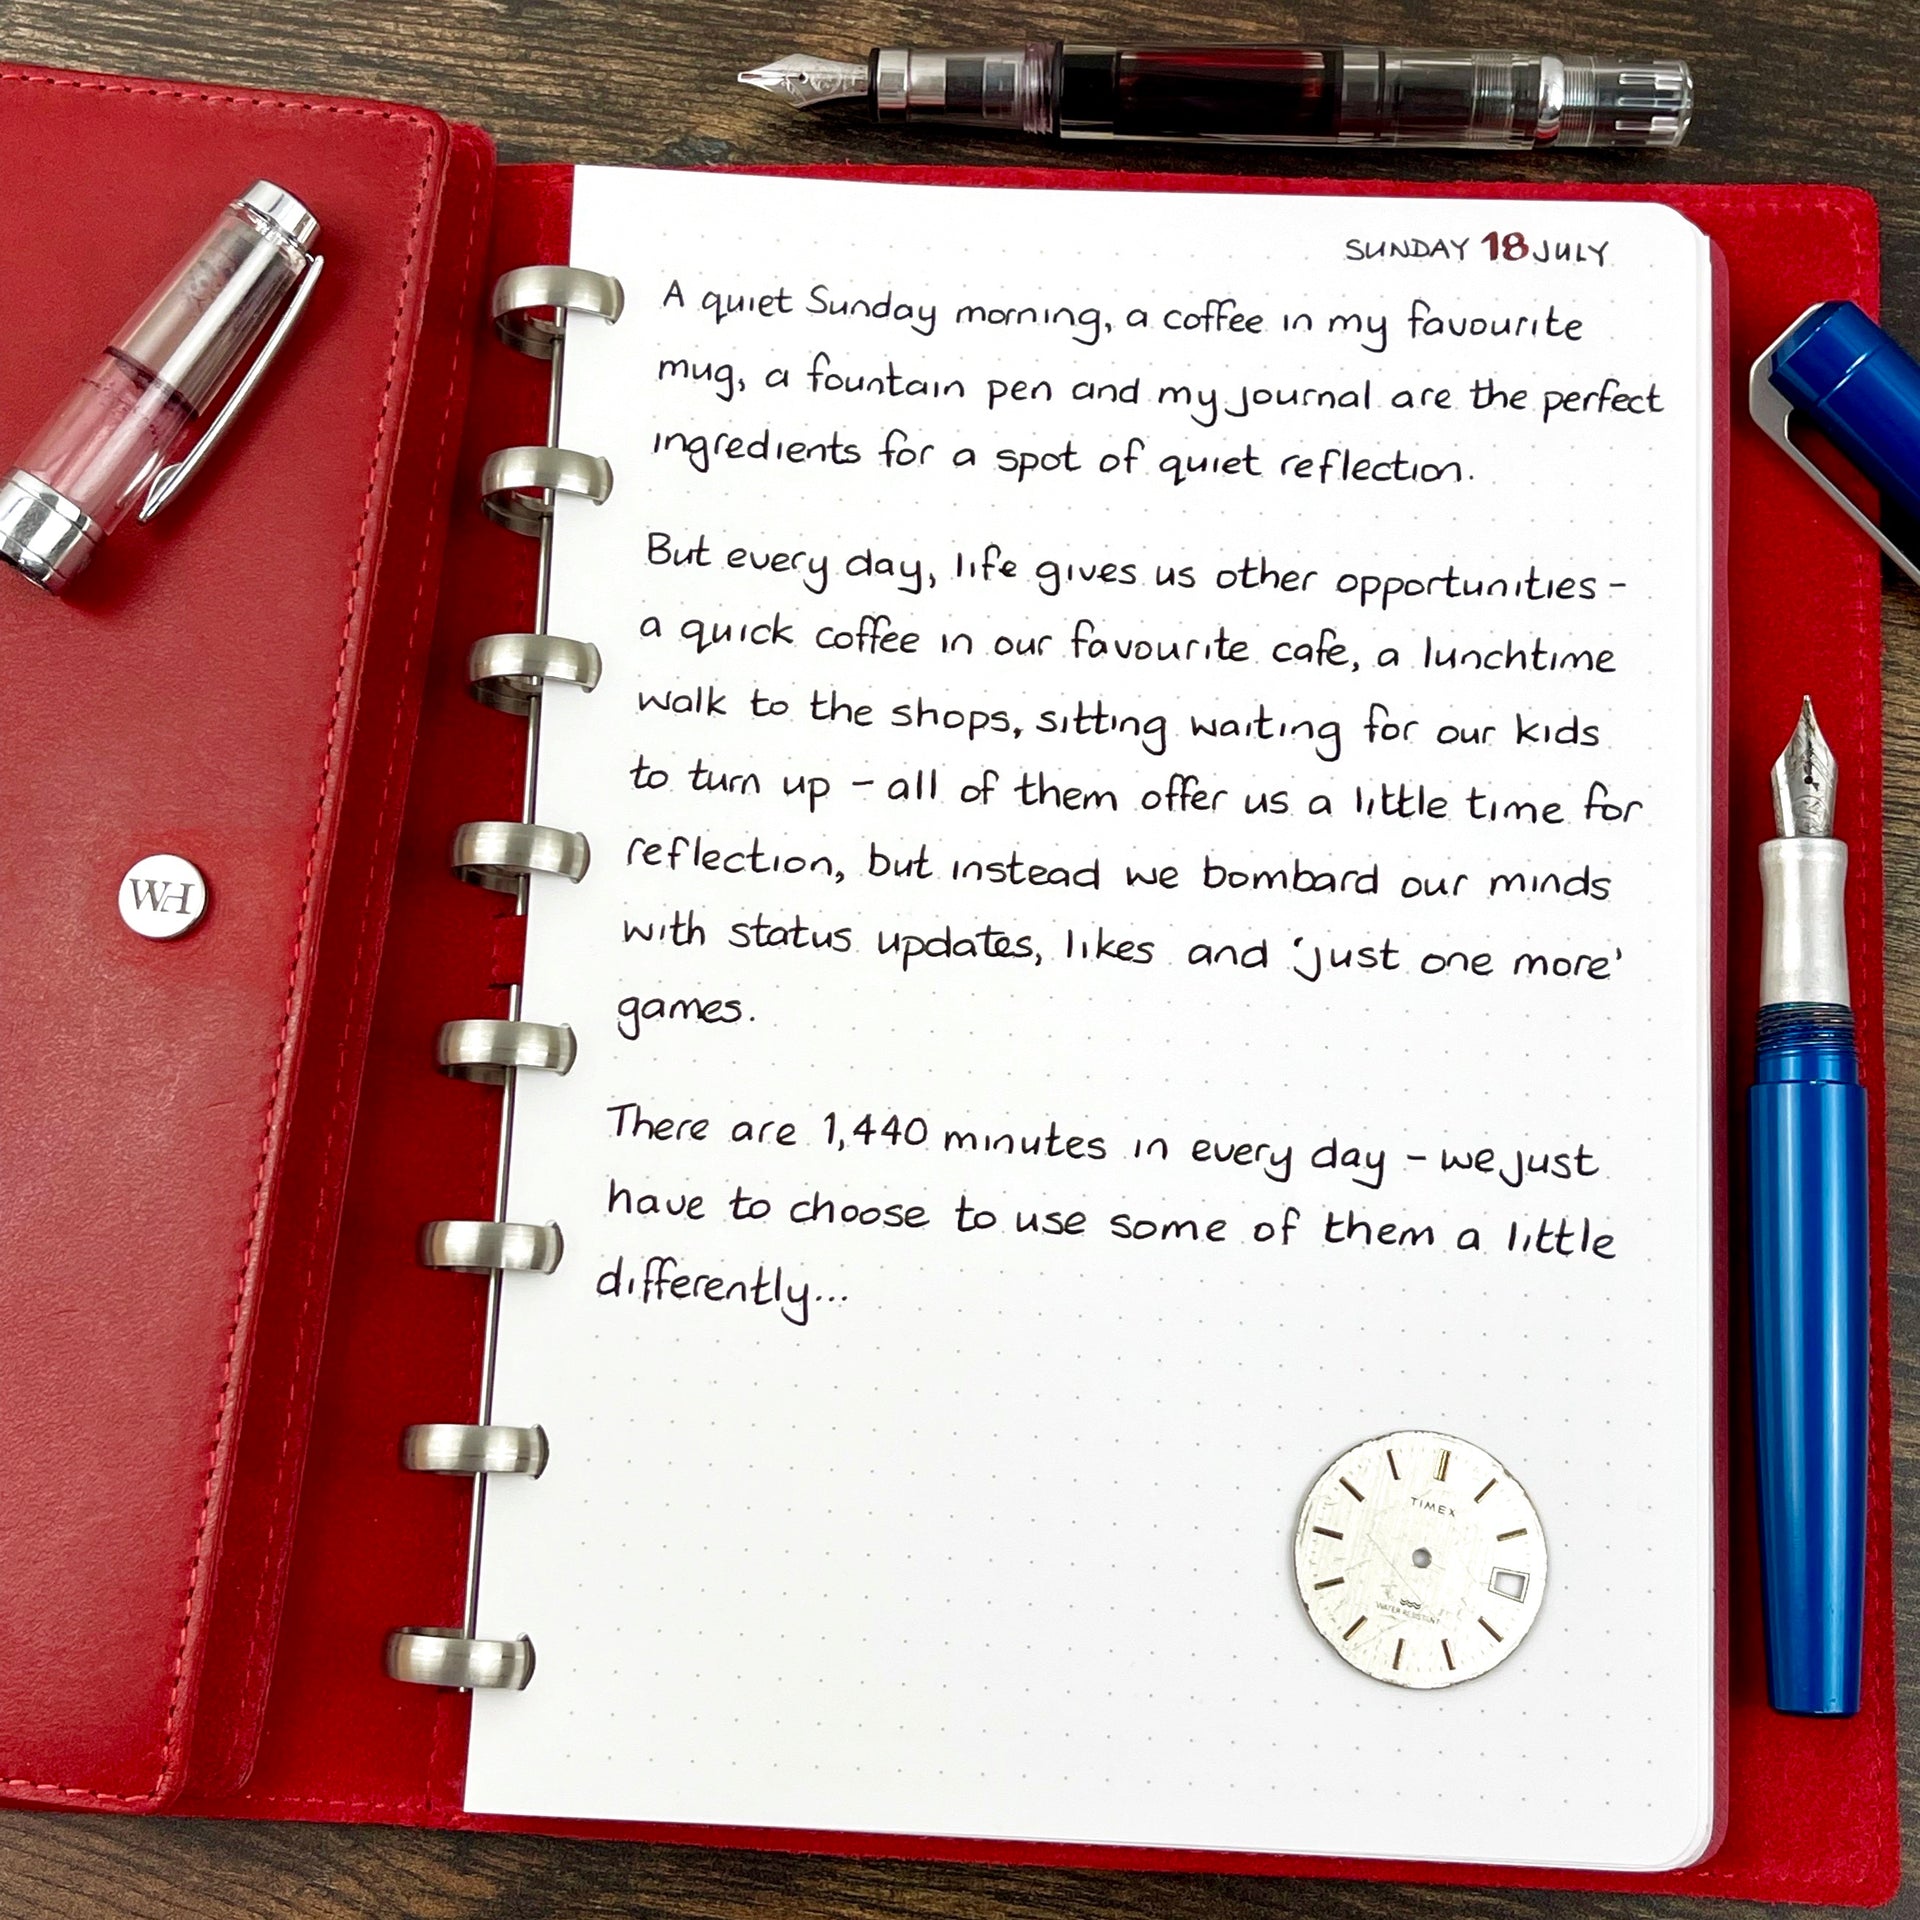 SUNDAY 18 JULY
A quiet Sunday morning, a coffee in my favourite
mug, a fountain pen and my journal are the perfect
ingredients for a spot of quiet reflection.
But every day, life gives us other opportunities -
a quick coffee in our favourite cafe, a lunchtime
walk to the shops, sitting waiting for our kids
to turn up - all of them offer us a little time for
reflection, but instead we bombard our minds
with status updates, likes and 'just one more'
games.
There are 1,440 minutes in every day - we just
have to choose to use some of them a little
differently...
WH
TIMEX
WATER RESISTANT